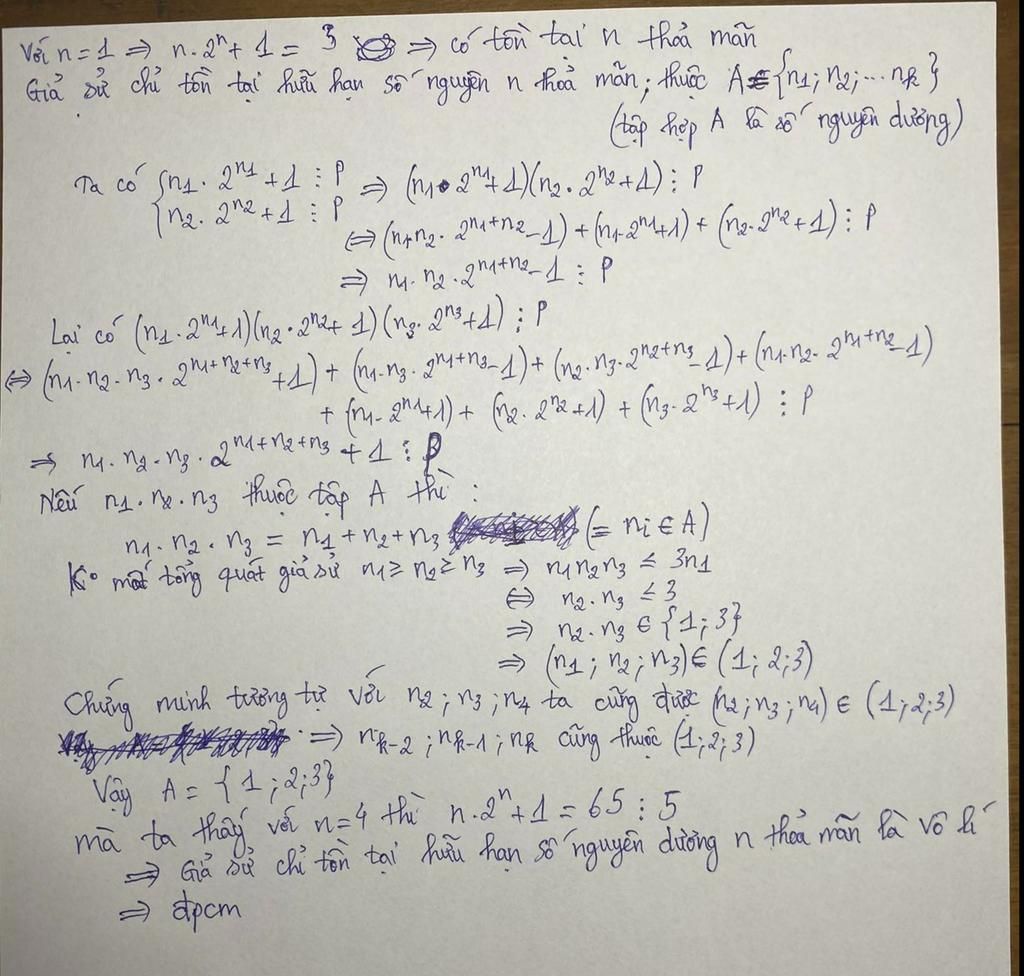 Với n=1 ⇒ n·2ⁿ + 1 = 3 ⇒ có tồn tại n thoả mãn
Giả sử chỉ tồn tại hữu hạn số nguyên n thoả mãn; thuộc A = {n₁; n₂; ... nₖ}
(tập hợp A là số nguyên dương)
Ta có {n₁·2^{n₁}+1 ⋮ P ⇒ (n₁·2^{n₁}+1)(n₂·2^{n₂}+1) ⋮ P
{n₂·2^{n₂}+1 ⋮ P
⇔ (n₁n₂·2^{n₁+n₂}-1) + (n₁·2^{n₁}+1) + (n₂·2^{n₂}+1) ⋮ P
⇒ n₁·n₂·2^{n₁+n₂}-1 ⋮ P
Lại có (n₁·2^{n₁}+1)(n₂·2^{n₂}+1)(n₃·2^{n₃}+1) ⋮ P
⇔ (n₁·n₂·n₃·2^{n₁+n₂+n₃}+1) + (n₁·n₃·2^{n₁+n₃}-1) + (n₂·n₃·2^{n₂+n₃}-1) + (n₁·n₂·2^{n₁+n₂}-1)
+ (n₁·2^{n₁}+1) + (n₂·2^{n₂}+1) + (n₃·2^{n₃}+1) ⋮ P
⇒ n₁·n₂·n₃·2^{n₁+n₂+n₃}+1 ⋮ P
Nếu n₁·n₂·n₃ thuộc tập A thì :
n₁·n₂·n₃ = n₁+n₂+n₃ (= nᵢ ∈ A)
K° mất tổng quát giả sử n₁ ≥ n₂ ≥ n₃ ⇒ n₁n₂n₃ ≤ 3n₁
⇔ n₂·n₃ ≤ 3
⇒ n₂·n₃ ∈ {1; 3}
⇒ (n₁; n₂; n₃) ∈ (1; 2; 3)
Chứng minh tương tự với n₂; n₃; n₄ ta cũng được (n₂; n₃; n₄) ∈ (1; 2; 3)
⇒ nₖ₋₂; nₖ₋₁; nₖ cũng thuộc (1; 2; 3)
Vậy A = {1; 2; 3}
mà ta thấy với n=4 thì n·2ⁿ+1 = 65 ⋮ 5
⇒ Giả sử chỉ tồn tại hữu hạn số nguyên dương n thoả mãn là vô lí
⇒ đpcm